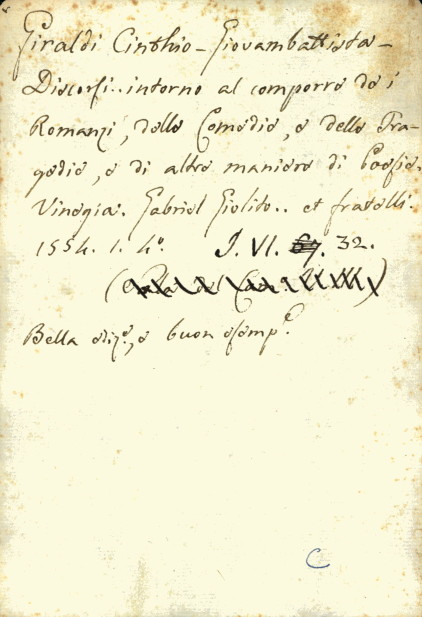 Giraldi Cinthio - Giovambattista -
Discorsi.. intorno al comporre de i
Romanzi, delle Comedie, e delle Tra-
gedie, e di altre maniere di Poesie.
Vinegia. Gabriel Giolito.. et fratelli.
1554. 1. 4°. J. VI. 32.
Bella ediz.e, e buon esemp.e
C